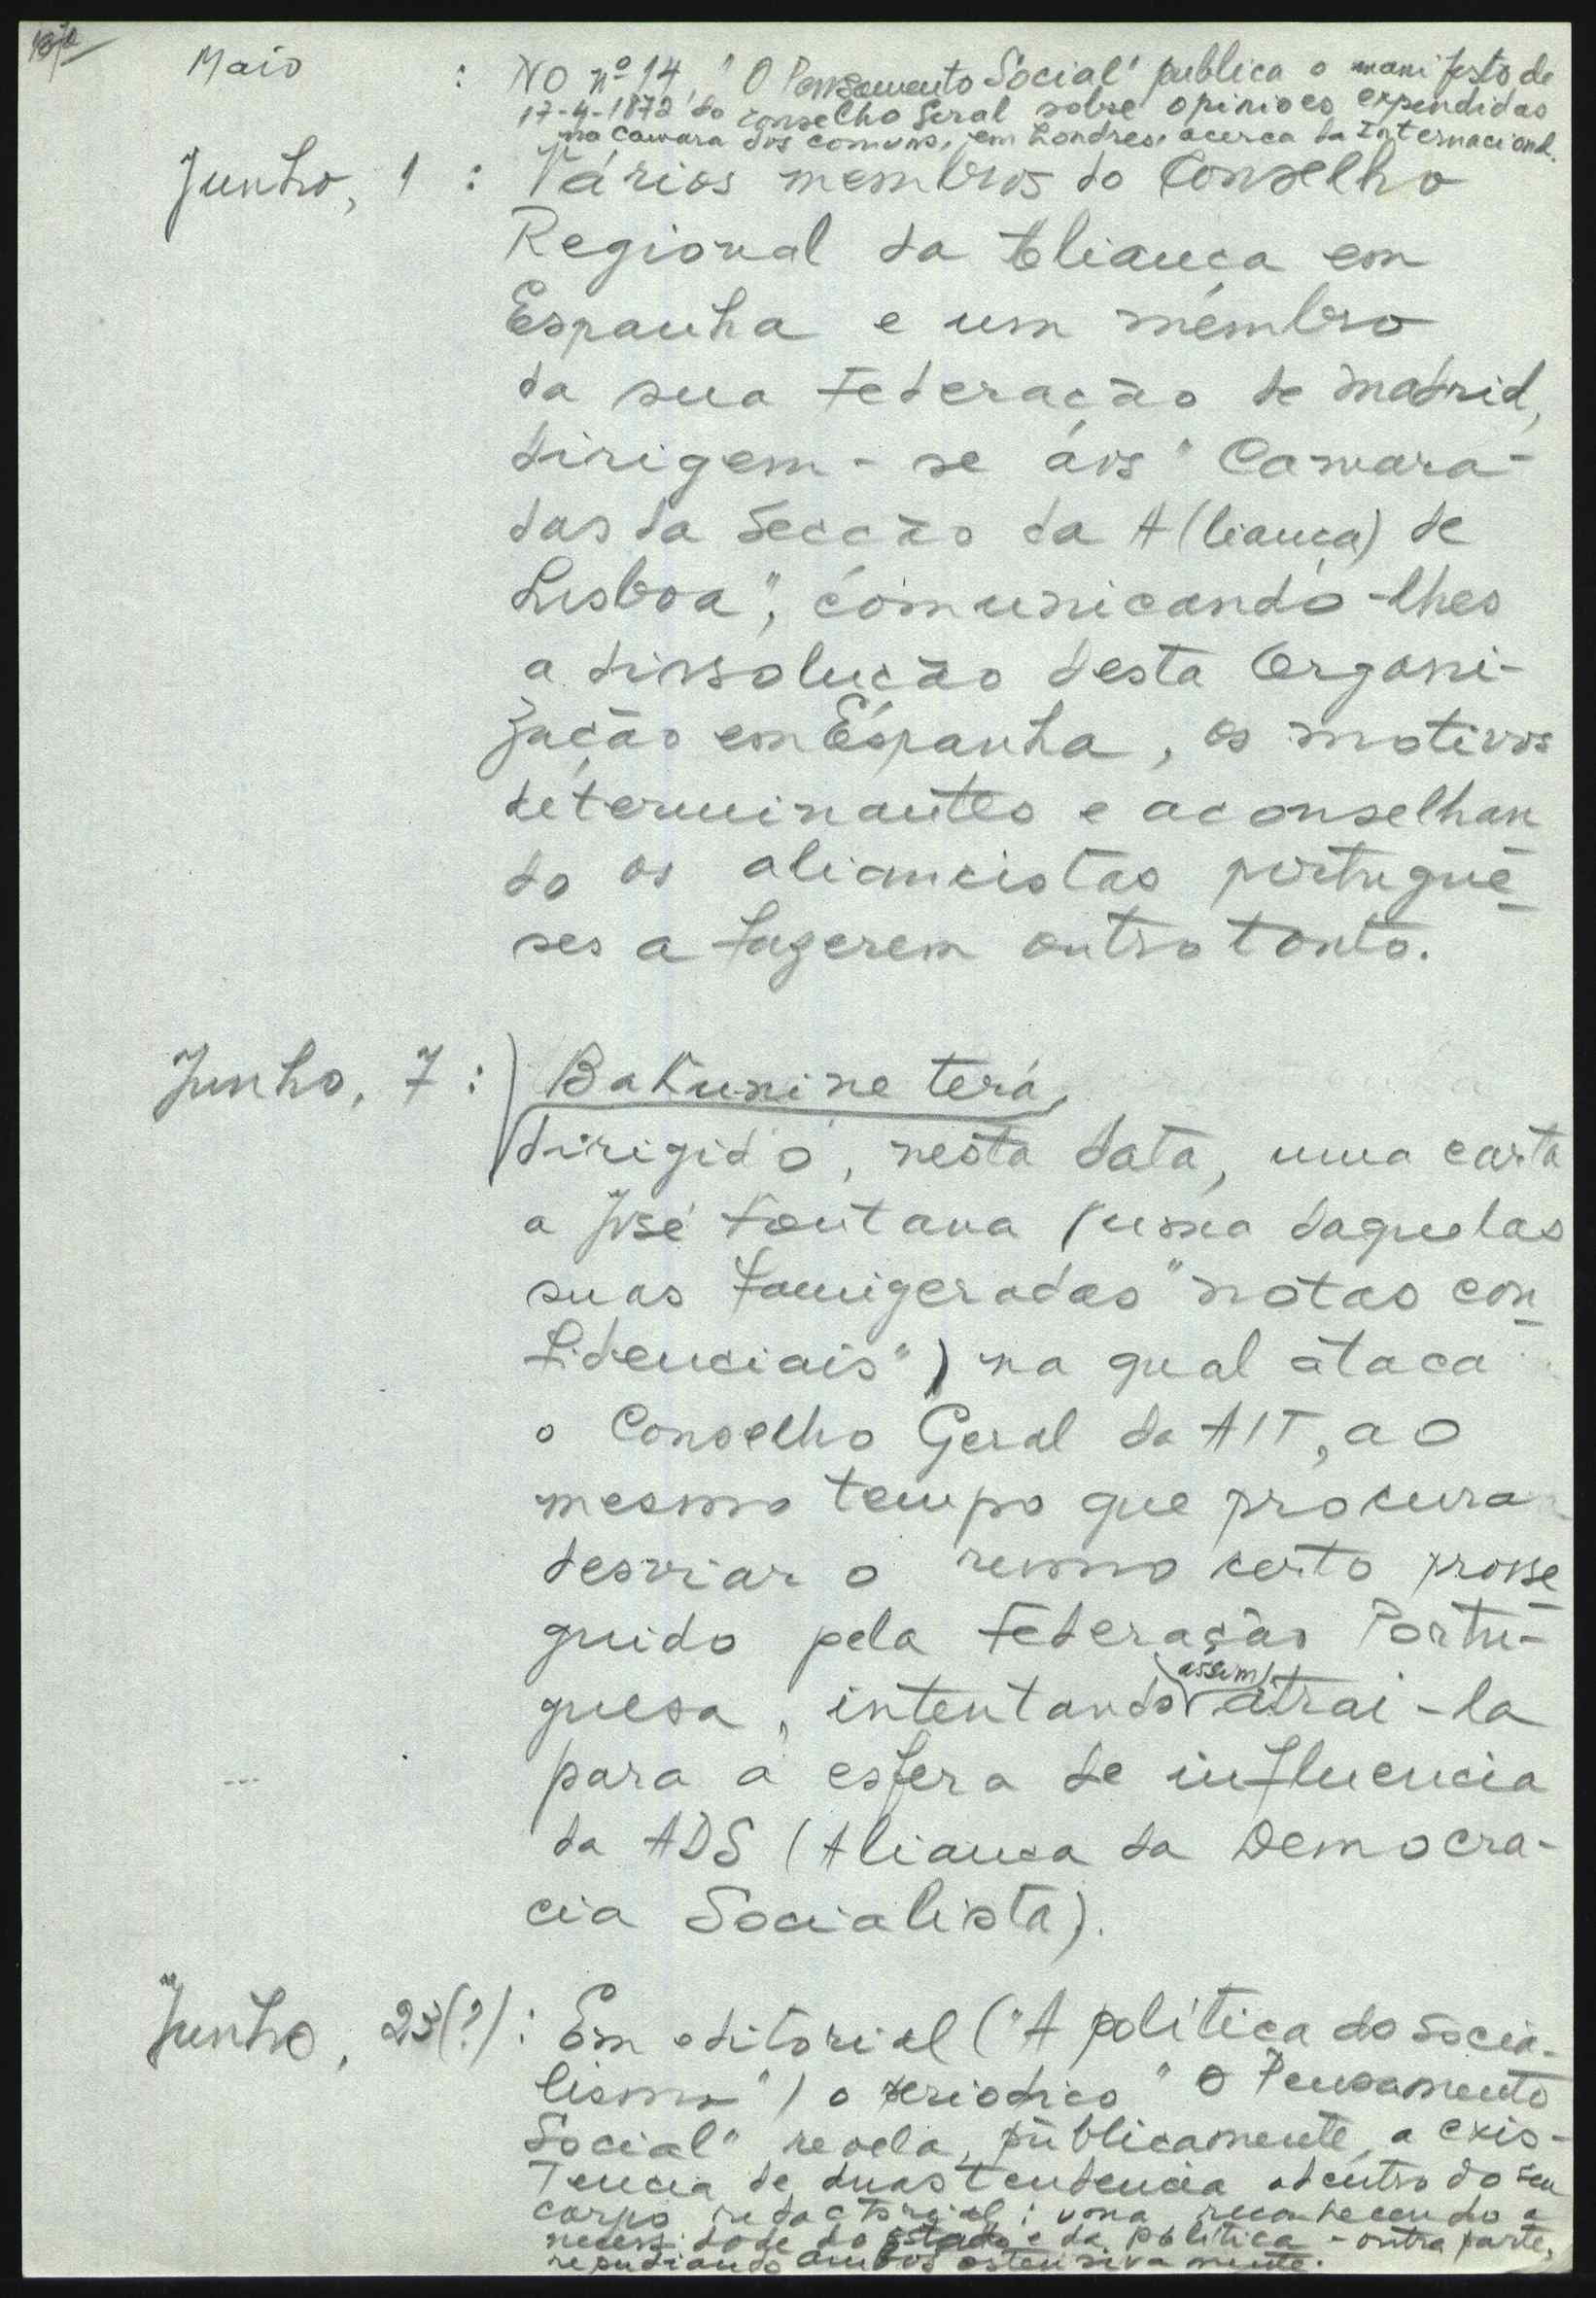 Maio : No nº 14, "O Pensamento Social" publica o manifesto de
17-4-1872 do conselho Geral sobre opiniões expendidas
na Camara dos comuns, em Londres, acerca da Internacional.
Junho, 1 : Vários membros do Conselho
Regional da Aliança em
Espanha e um membro
da sua Federação de Madrid,
dirigem-se áos "Camara-
das da Secção da A(liança) de
Lisboa", comunicando-lhes
a dissolução desta Organi-
zação em Espanha, os motivos
determinantes e aconselhan
do os aliancistas portuguê-
ses a fazerem outro tanto.
Junho, 7 : Bakunine terá,
dirigido, nesta data, uma carta
a José Fontana (uma daquelas
suas famigeradas "notas con-
fidenciais") na qual ataca
o Conselho Geral da AIT, ao
mesmo tempo que procura
desviar o rumo certo prosse-
guido pela Federação Portu-
guesa, intentando assim atrai-la
para a esfera de influencia
da ADS (Aliança da Democra-
cia Socialista).
Junho, 23(?) : Em editorial ("A política do Socia-
lismo") o periodico "O Pensamento
Social" revela, públicamente, a exis-
tencia de duas tendencia adentro do seu
corpo redactorial: uma reconhecendo a
necessidade do estado e da política - outra parte,
repudiando ambos ostensivamente.